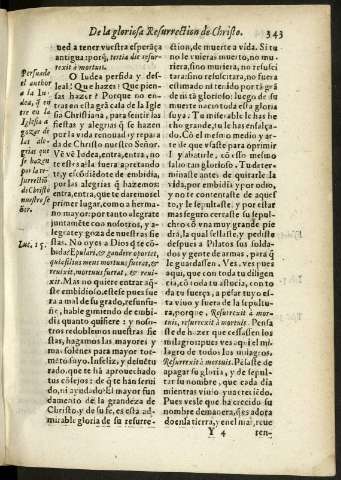 De la gloriosa Resurrection de Christo. 343
ued a tener vuestra esperãça
antigua: porq̃, tertia die resur-
rexit à mortuis.
O Iudea perfida y des-
leal! Que hazes? Que pien-
sas hazer? Porque no en-
tras en esta grã cala de la Igle
sia Christiana, para sentir las
fiestas y alegrias q̃ se hazen
por la vida renouada y repara
da de Christo nuestro Señor.
Vẽ vẽ Iudea, entra, entra, no
te estès ala fuera apretando
te, y escõdiẽdote de embidia,
por las alegrias q̃ hazemos:
entra, entra, que te daremos el
primer lugar, como a herma-
no mayor: por tanto alegrate
juntamẽte con nosotros, y a-
legrate y goza de nuestras fie
stas. No oyes a Dios q̃ te cõ-
bida: Epulari, & gaudere oportet,
quia filius meus mortuus fuerat, &
reuixit, mortuus fuerat, & reui-
xit. Mas no quiere entrar aq̃-
ste embidioso, estese pues fue
ra a mal de su grado, resunfu-
ñe, hable gimiendo de embi-
dia quanto quisiere: y noso-
tros redoblemos nuestras fie
stas, hagamos las mayores y
mas solenes para mayor tor-
mẽto suyo. Infeliz, y desuẽtu
rado. que te hà aprouechado
tus cõsejos: de q̃ te han serui
do, ni ayudado? El mayor fun
damento de la grandeza de
Christo, y de su fe, es esta ad-
mirable gloria de su resurre-
Persuade
el author
a la Iu-
dea, q̃ en
tre en la
Iglesia a
gozar de
las ale-
grias que
se hazen
por la re-
surrectiõ
de Christo
nuestro se
ñor.
Luc. 15.
ction, de muerte a vida. Si tu
no le vuieras muerto, no mu
riera, sino muriera, no resuci
tara: sino resucitara, no fuera
estimado ni tenido por tã grã
de ni tã glorioso: luego de su
muerte nacio toda esta gloria
suya. Tu miserable le has he
cho grande, tu le has ensalça-
do. Cõ el mesmo medio y ar-
te de que vsaste para oprimir
l y abaturle, cõ esso mesmo
salio tan glorioso. Tu deter-
minaste antes de quitarle la
vida, por embidia y por odio,
y no te contentaste de aques
to, y le sepultaste, y por estar
mas seguro cerraste su sepul-
chro cõ vna muy grande pie
drà, la qual sellaste, y pediste
despues a Pilatos sus solda-
dos y gente de armas, para q̃
le guardassen. Ves, ves pues
aqui, que con toda tu diligen
cia, cõ toda tu astucia, con to
da tu fuerça, a pesar tuyo es-
ta viuo y fuera de la sepultu-
ra, porque, Resurrexit à mor-
tuis, resurrexit à mortuis. Pensa
ste de hazer que cessassen los
milagros: pues ves aqui el mi-
lagro de todos los milagros.
Resurrexit à mortuis. Pẽsaste de
apagar su gloria, y de sepul-
tar su nombre, que cada dia
mientras viuio yua creciẽdo.
Pues vesle que ha crecido su
nombre de manera, q̃ es adora
do en la tierra, y en el mar, reue
Y 4 ren-